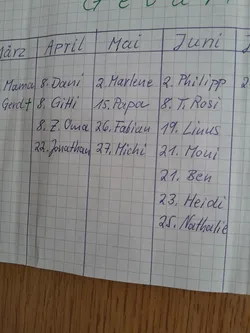 März April Mai Juni
Mama 8. Dani 2. Marlene 2. Philipp
Gerd† 8. Gitti 15. Papa 8. T. Rosi
8. Z. Oma 26. Fabian 19. Linus
22. Jonathan 27. Michi 21. Moni
21. Ben
23. Heidi
25. Nathalie